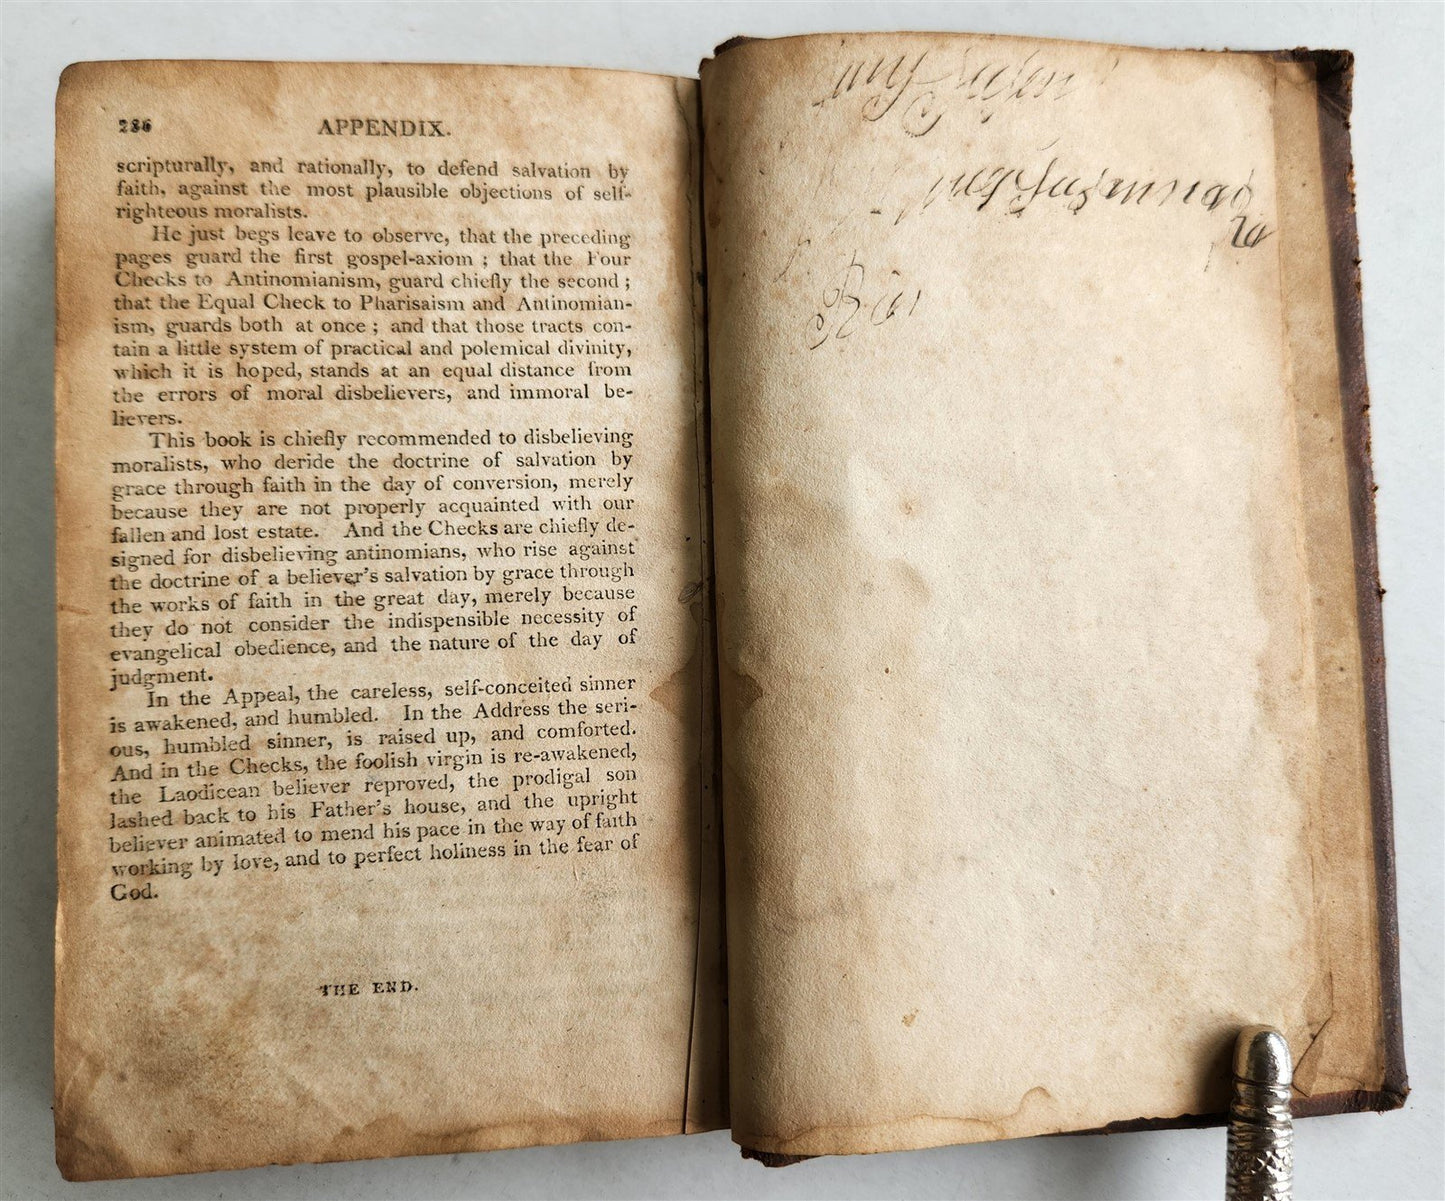 286 APPENDIX.
scripturally, and rationally, to defend salvation by
faith, against the most plausible objections of self-
righteous moralists.
He just begs leave to observe, that the preceding
pages guard the first gospel-axiom ; that the Four
Checks to Antinomianism, guard chiefly the second ;
that the Equal Check to Pharisaism and Antinomian-
ism, guards both at once ; and that those tracts con-
tain a little system of practical and polemical divinity,
which it is hoped, stands at an equal distance from
the errors of moral disbelievers, and immoral be-
lievers.
This book is chiefly recommended to disbelieving
moralists, who deride the doctrine of salvation by
grace through faith in the day of conversion, merely
because they are not properly acquainted with our
fallen and lost estate. And the Checks are chiefly de-
signed for disbelieving antinomians, who rise against
the doctrine of a believer's salvation by grace through
the works of faith in the great day, merely because
they do not consider the indispensible necessity of
evangelical obedience, and the nature of the day of
judgment.
In the Appeal, the careless, self-conceited sinner
is awakened, and humbled. In the Address the seri-
ous, humbled sinner, is raised up, and comforted.
And in the Checks, the foolish virgin is re-awakened,
the Laodicean believer reproved, the prodigal son
lashed back to his Father's house, and the upright
believer animated to mend his pace in the way of faith
working by love, and to perfect holiness in the fear of
God.
THE END.